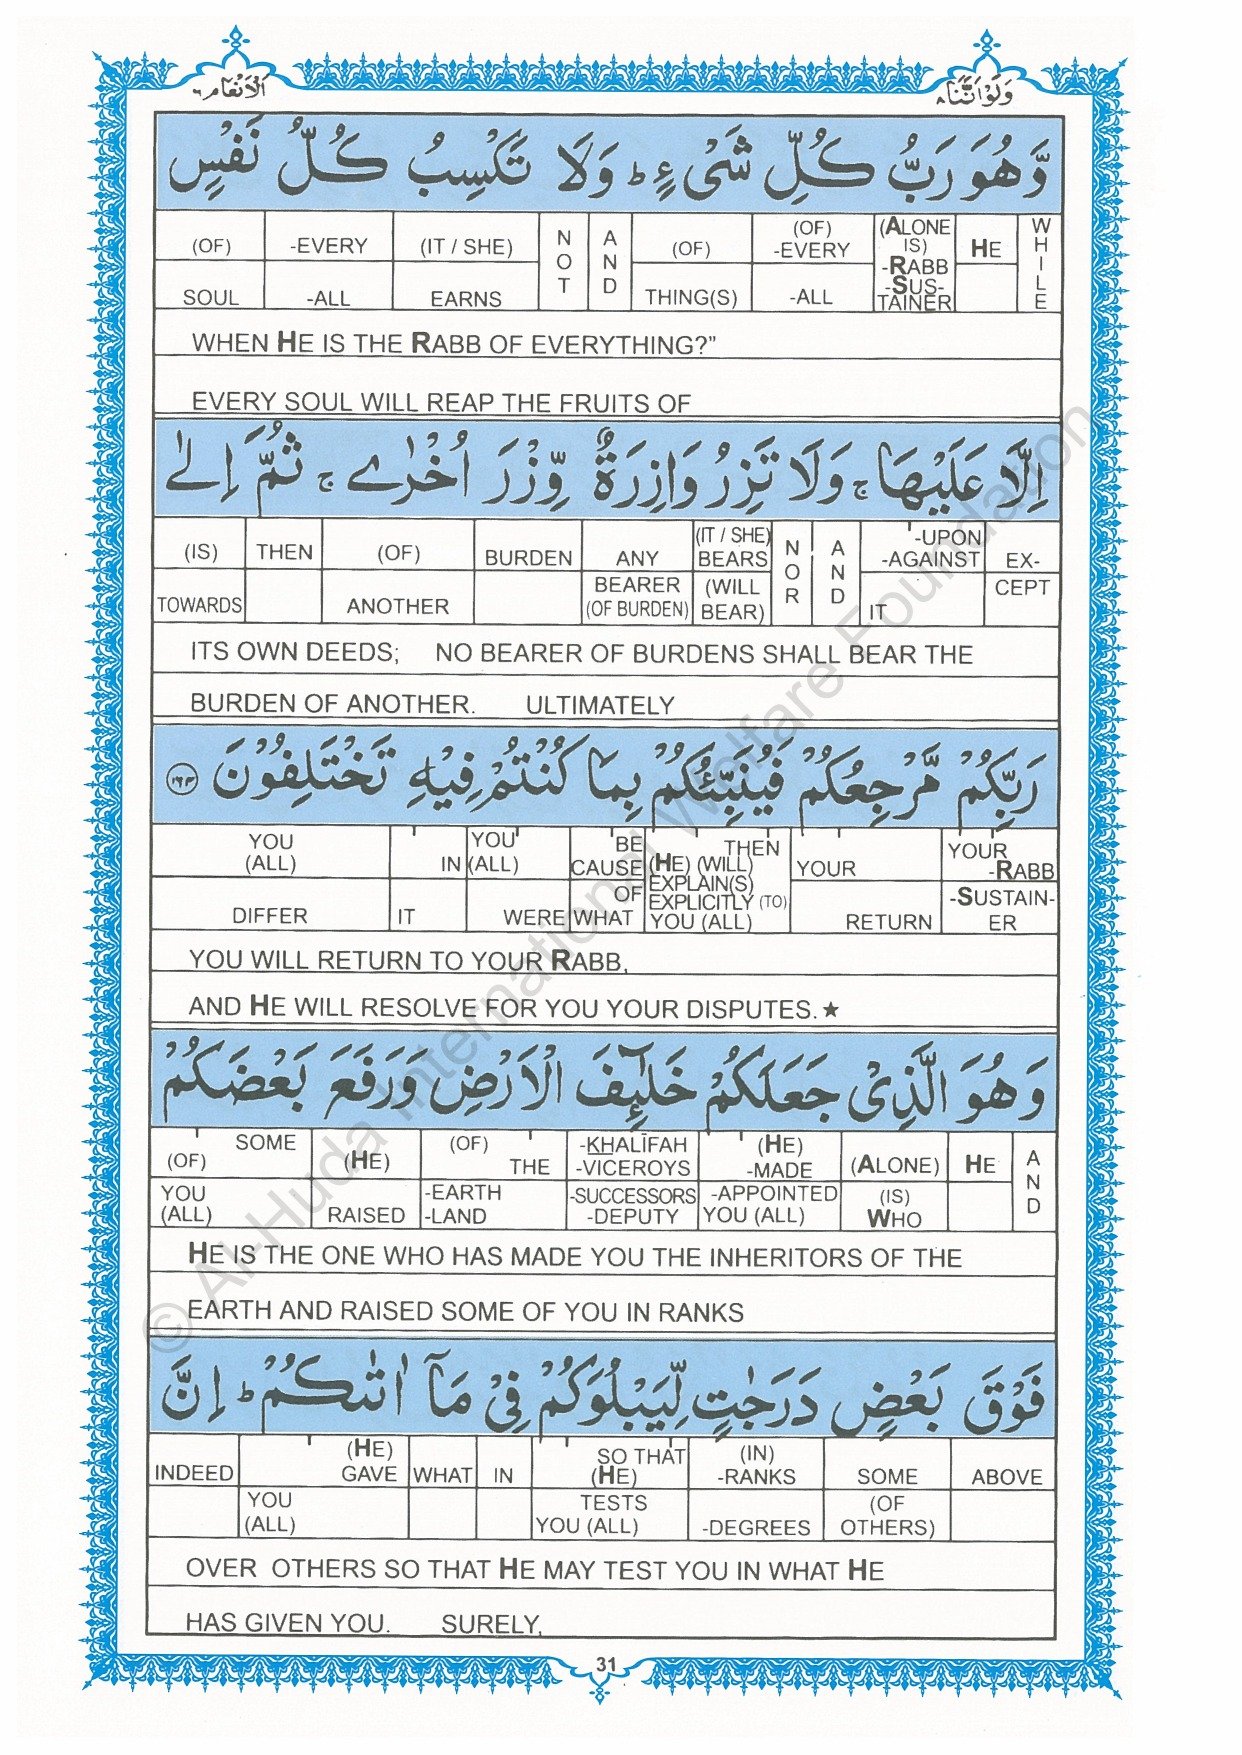 الانعام ٦
ولو اننا ٨
وَّهُوَ رَبُّ كُلِّ شَیْءٍ ؕ وَلَا تَكْسِبُ كُلُّ نَفْسٍ
(OF) -EVERY (IT / SHE) NOT AND (OF) (OF) -EVERY (ALONE IS) -RABB -SUS- TAINER HE WHILE
SOUL -ALL EARNS THING(S) -ALL
WHEN HE IS THE RABB OF EVERYTHING?”
EVERY SOUL WILL REAP THE FRUITS OF
اِلَّا عَلَیْهَا ۚ وَلَا تَزِرُ وَازِرَةٌ وِّزْرَ اُخْرٰی ۚ ثُمَّ اِلٰی
(IS) THEN (OF) BURDEN ANY (IT / SHE) BEARS NOR AND -UPON -AGAINST EX-
TOWARDS ANOTHER BEARER (OF BURDEN) (WILL BEAR) IT CEPT
ITS OWN DEEDS; NO BEARER OF BURDENS SHALL BEAR THE
BURDEN OF ANOTHER. ULTIMATELY
رَبِّكُمْ مَّرْجِعُكُمْ فَیُنَبِّئُكُمْ بِمَا كُنْتُمْ فِیْهِ تَخْتَلِفُوْنَ ١٦٤
YOU (ALL) IN YOU (ALL) BE CAUSE OF WHAT THEN (HE) (WILL) EXPLAIN(S) EXPLICITLY (TO) YOU (ALL) YOUR YOUR -RABB
DIFFER IT WERE RETURN -SUSTAIN- ER
YOU WILL RETURN TO YOUR RABB,
AND HE WILL RESOLVE FOR YOU YOUR DISPUTES. ★
وَهُوَ الَّذِیْ جَعَلَكُمْ خَلٰٓئِفَ الْاَرْضِ وَرَفَعَ بَعْضَكُمْ
SOME (OF) (HE) (OF) THE -KHALĪFAH -VICEROYS (HE) -MADE (ALONE) HE AND
YOU (ALL) RAISED -EARTH -LAND -SUCCESSORS -DEPUTY -APPOINTED YOU (ALL) (IS) WHO
HE IS THE ONE WHO HAS MADE YOU THE INHERITORS OF THE
EARTH AND RAISED SOME OF YOU IN RANKS
فَوْقَ بَعْضٍ دَرَجٰتٍ لِّیَبْلُوَكُمْ فِیْ مَاۤ اٰتٰىكُمْ ؕ اِنَّ
INDEED (HE) GAVE WHAT IN SO THAT (HE) (IN) -RANKS SOME ABOVE
YOU (ALL) TESTS YOU (ALL) -DEGREES (OF OTHERS)
OVER OTHERS SO THAT HE MAY TEST YOU IN WHAT HE
HAS GIVEN YOU. SURELY,
31
© Al-Huda International Welfare Foundation